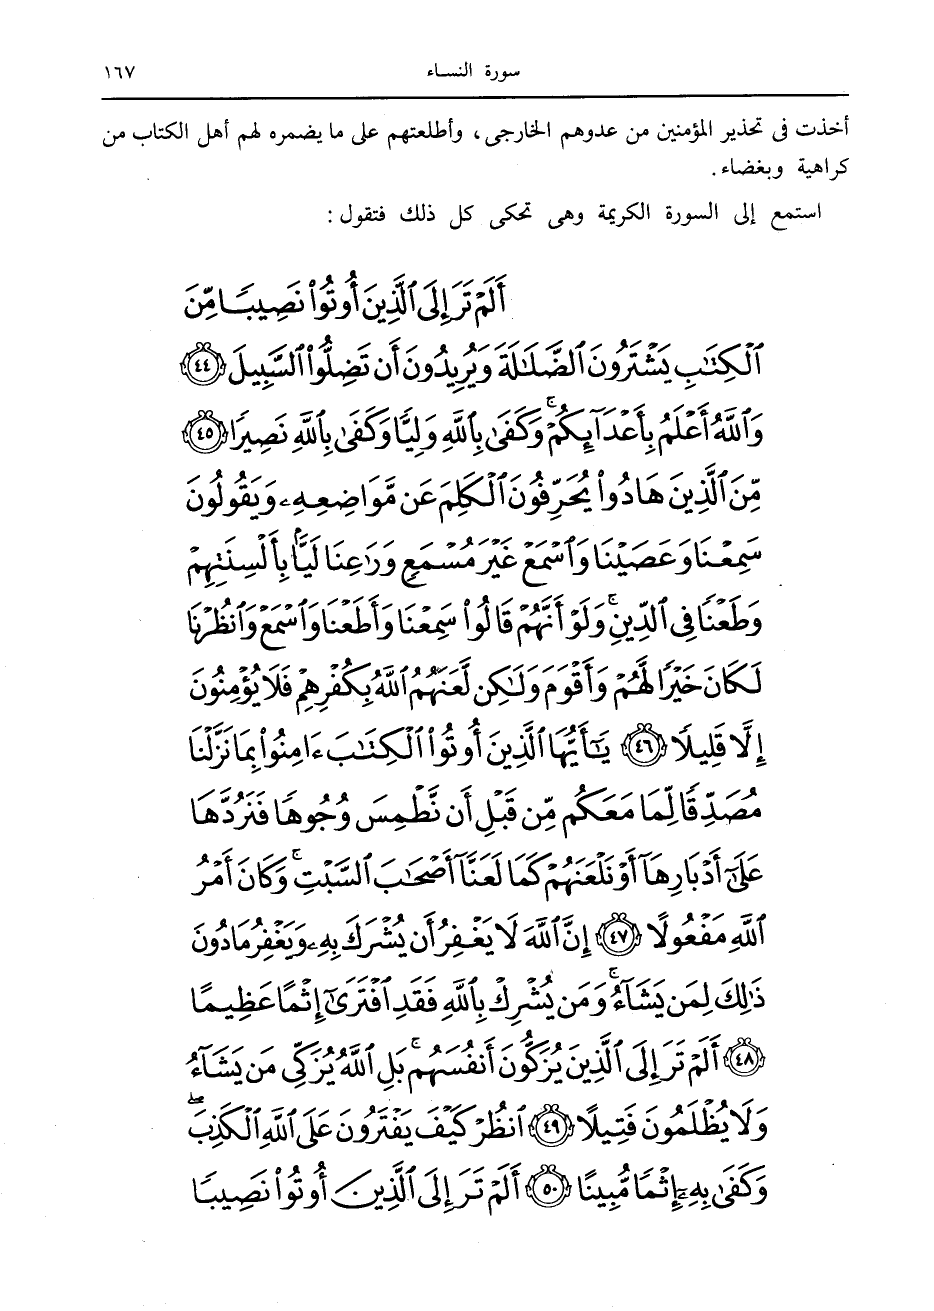 سورة النساء ١٦٧
أخذت فى تحذير المؤمنين من عدوهم الخارجى، وأطلعتهم على ما يضمره لهم أهل الكتاب من
كراهية وبغضاء.
استمع إلى السورة الكريمة وهى تحكى كل ذلك فتقول:
أَلَمْ تَرَ إِلَى ٱلَّذِينَ أُوتُوا۟ نَصِيبًا مِّنَ
ٱلْكِتَٰبِ يَشْتَرُونَ ٱلضَّلَٰلَةَ وَيُرِيدُونَ أَن تَضِلُّوا۟ ٱلسَّبِيلَ ﴿٤٤﴾
وَٱللَّهُ أَعْلَمُ بِأَعْدَآئِكُمْ ۚ وَكَفَىٰ بِٱللَّهِ وَلِيًّا وَكَفَىٰ بِٱللَّهِ نَصِيرًا ﴿٤٥﴾
مِّنَ ٱلَّذِينَ هَادُوا۟ يُحَرِّفُونَ ٱلْكَلِمَ عَن مَّوَاضِعِهِۦ وَيَقُولُونَ
سَمِعْنَا وَعَصَيْنَا وَٱسْمَعْ غَيْرَ مُسْمَعٍ وَرَٰعِنَا لَيًّۢا بِأَلْسِنَتِهِمْ
وَطَعْنًا فِى ٱلدِّينِ ۚ وَلَوْ أَنَّهُمْ قَالُوا۟ سَمِعْنَا وَأَطَعْنَا وَٱسْمَعْ وَٱنظُرْنَا
لَكَانَ خَيْرًا لَّهُمْ وَأَقْوَمَ وَلَٰكِن لَّعَنَهُمُ ٱللَّهُ بِكُفْرِهِمْ فَلَا يُؤْمِنُونَ
إِلَّا قَلِيلًا ﴿٤٦﴾ يَٰٓأَيُّهَا ٱلَّذِينَ أُوتُوا۟ ٱلْكِتَٰبَ ءَامِنُوا۟ بِمَا نَزَّلْنَا
مُصَدِّقًا لِّمَا مَعَكُم مِّن قَبْلِ أَن نَّطْمِسَ وُجُوهًا فَنَرُدَّهَا
عَلَىٰٓ أَدْبَارِهَآ أَوْ نَلْعَنَهُمْ كَمَا لَعَنَّآ أَصْحَٰبَ ٱلسَّبْتِ ۚ وَكَانَ أَمْرُ
ٱللَّهِ مَفْعُولًا ﴿٤٧﴾ إِنَّ ٱللَّهَ لَا يَغْفِرُ أَن يُشْرَكَ بِهِۦ وَيَغْفِرُ مَا دُونَ
ذَٰلِكَ لِمَن يَشَآءُ ۚ وَمَن يُشْرِكْ بِٱللَّهِ فَقَدِ ٱفْتَرَىٰٓ إِثْمًا عَظِيمًا
﴿٤٨﴾ أَلَمْ تَرَ إِلَى ٱلَّذِينَ يُزَكُّونَ أَنفُسَهُم ۚ بَلِ ٱللَّهُ يُزَكِّى مَن يَشَآءُ
وَلَا يُظْلَمُونَ فَتِيلًا ﴿٤٩﴾ ٱنظُرْ كَيْفَ يَفْتَرُونَ عَلَى ٱللَّهِ ٱلْكَذِبَ ۖ
وَكَفَىٰ بِهِۦٓ إِثْمًا مُّبِينًا ﴿٥٠﴾ أَلَمْ تَرَ إِلَى ٱلَّذِينَ أُوتُوا۟ نَصِيبًا